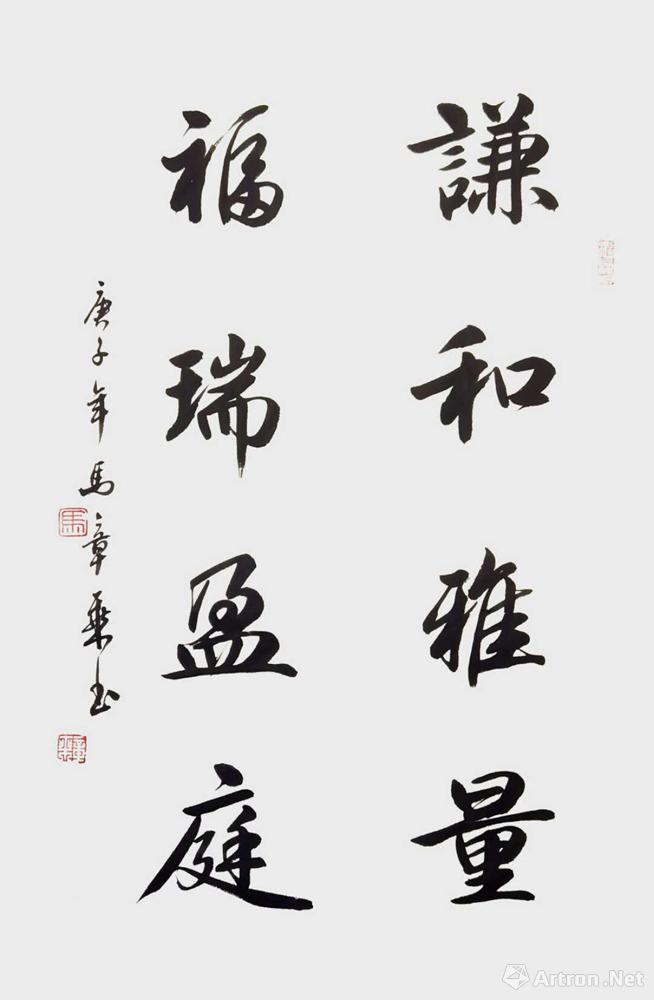 謙和雅量
福瑞盈庭
庚子年馬章乗书
馬
Artron.Net